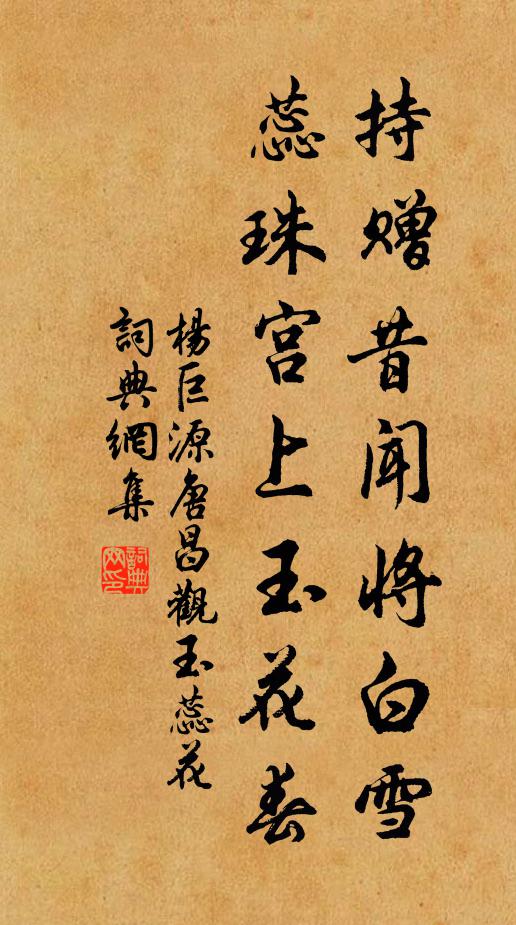 持赠昔闻将白雪
蕊珠宫上玉花春
楊巨源唐昌觀玉蕊花
詞典網集
詞典網印